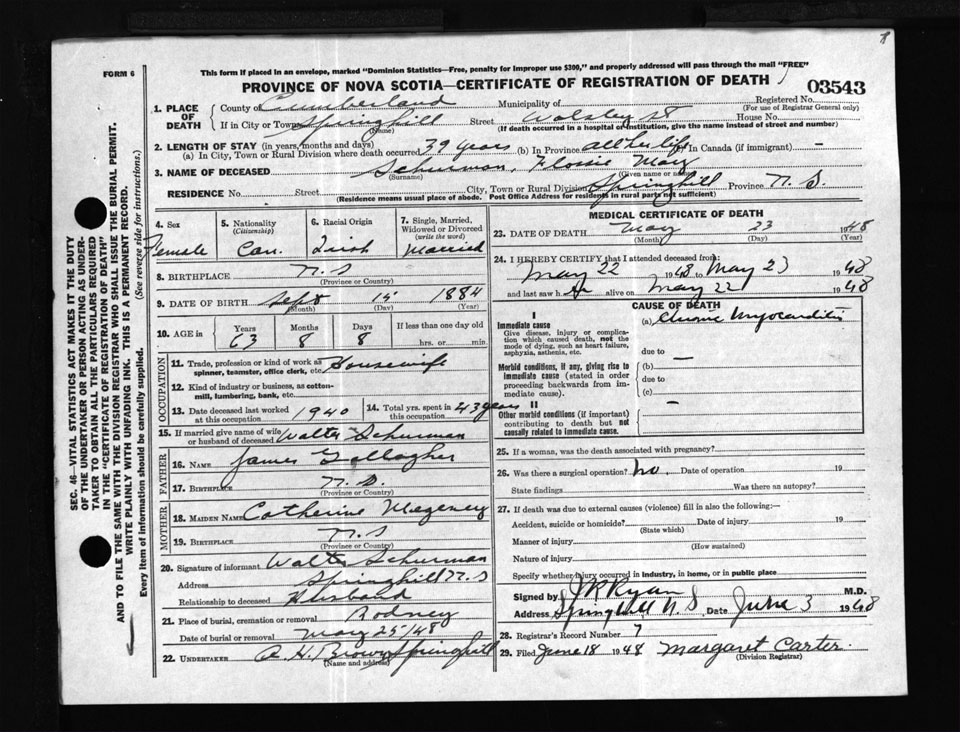 8
FORM 6
This form if placed in an envelope, marked "Dominion Statistics—Free, penalty for improper use $300," and properly addressed will pass through the mail "FREE"
PROVINCE OF NOVA SCOTIA—CERTIFICATE OF REGISTRATION OF DEATH
03543
1. PLACE OF DEATH
County of Cumberland Municipality of Registered No.
(For use of Registrar General only)
If in City or Town Springhill Street Wolsley St House No.
(Name) (If death occurred in a hospital or institution, give the name instead of street and number)
2. LENGTH OF STAY (in years, months and days)
(a) In City, Town or Rural Division where death occurred 39 years (b) In Province all her life In Canada (if immigrant) —
3. NAME OF DECEASED Schurman, Flossie May
(Surname) (Given name or names)
RESIDENCE No. Street City, Town or Rural Division Springhill Province N. S.
(Residence means usual place of abode. Post Office Address for residents in rural part not sufficient)
4. Sex
Female
5. Nationality
(Citizenship)
Can.
6. Racial Origin
Irish
7. Single, Married, Widowed or Divorced
(write the word)
Married
8. BIRTHPLACE N. S
(Province or Country)
9. DATE OF BIRTH Sept 15 1884
(Month) (Day) (Year)
10. AGE in Years Months Days If less than one day old
63 8 8 hrs. or min.
OCCUPATION
11. Trade, profession or kind of work as spinner, teamster, office clerk, etc. Housewife
12. Kind of industry or business, as cotton-mill, lumbering, bank, etc.
13. Date deceased last worked at this occupation 1940
14. Total yrs. spent in this occupation 43 years
15. If married give name of wife or husband of deceased Walter Schurman
FATHER
16. NAME James Gallagher
17. BIRTHPLACE N. S.
(Province or Country)
MOTHER
18. MAIDEN NAME Catherine
19. BIRTHPLACE N. S
(Province or Country)
20. Signature of informant Walter Schurman
Address Springhill N. S
Relationship to deceased Husband
21. Place of burial, cremation or removal Rodney
Date of burial or removal May 25/48
22. UNDERTAKER A. H. Brown Springhill
(Name and address)
MEDICAL CERTIFICATE OF DEATH
23. DATE OF DEATH May 23 1948
(Month) (Day) (Year)
24. I HEREBY CERTIFY that I attended deceased from:
May 22 1948 to May 23 1948
and last saw her alive on May 22 1948
CAUSE OF DEATH
I
Immediate cause
Give disease, injury or complication which caused death, not the mode of dying, such as heart failure, asphyxia, asthenia, etc.
(a) Chronic Myocarditis
due to —
Morbid conditions, if any, giving rise to immediate cause (stated in order proceeding backwards from immediate cause).
(b)
due to
(c)
II
—
Other morbid conditions (if important) contributing to death but not causally related to immediate cause.
25. If a woman, was the death associated with pregnancy?
26. Was there a surgical operation? no. Date of operation 19
State findings Was there an autopsy?
27. If death was due to external causes (violence) fill in also the following:—
Accident, suicide or homicide? Date of injury 19
(State which)
Manner of injury
(How sustained)
Nature of injury
Specify whether injury occurred in industry, in home, or in public place
Signed by J R Ryan M.D.
Address Springhill N.S, Date June 3 1948
28. Registrar's Record Number 7
29. Filed June 18 1948 Margaret Carter.
(Division Registrar)
SEC. 46—VITAL STATISTICS ACT MAKES IT THE DUTY
OF THE UNDERTAKER OR PERSON ACTING AS UNDERTAKER TO OBTAIN ALL THE PARTICULARS REQUIRED
IN THE "CERTIFICATE OF REGISTRATION OF DEATH"
AND TO FILE THE SAME WITH THE DIVISION REGISTRAR WHO SHALL ISSUE THE BURIAL PERMIT.
WRITE PLAINLY WITH UNFADING INK. THIS IS A PERMANENT RECORD.
Every item of information should be carefully supplied. (See reverse side for instructions.)